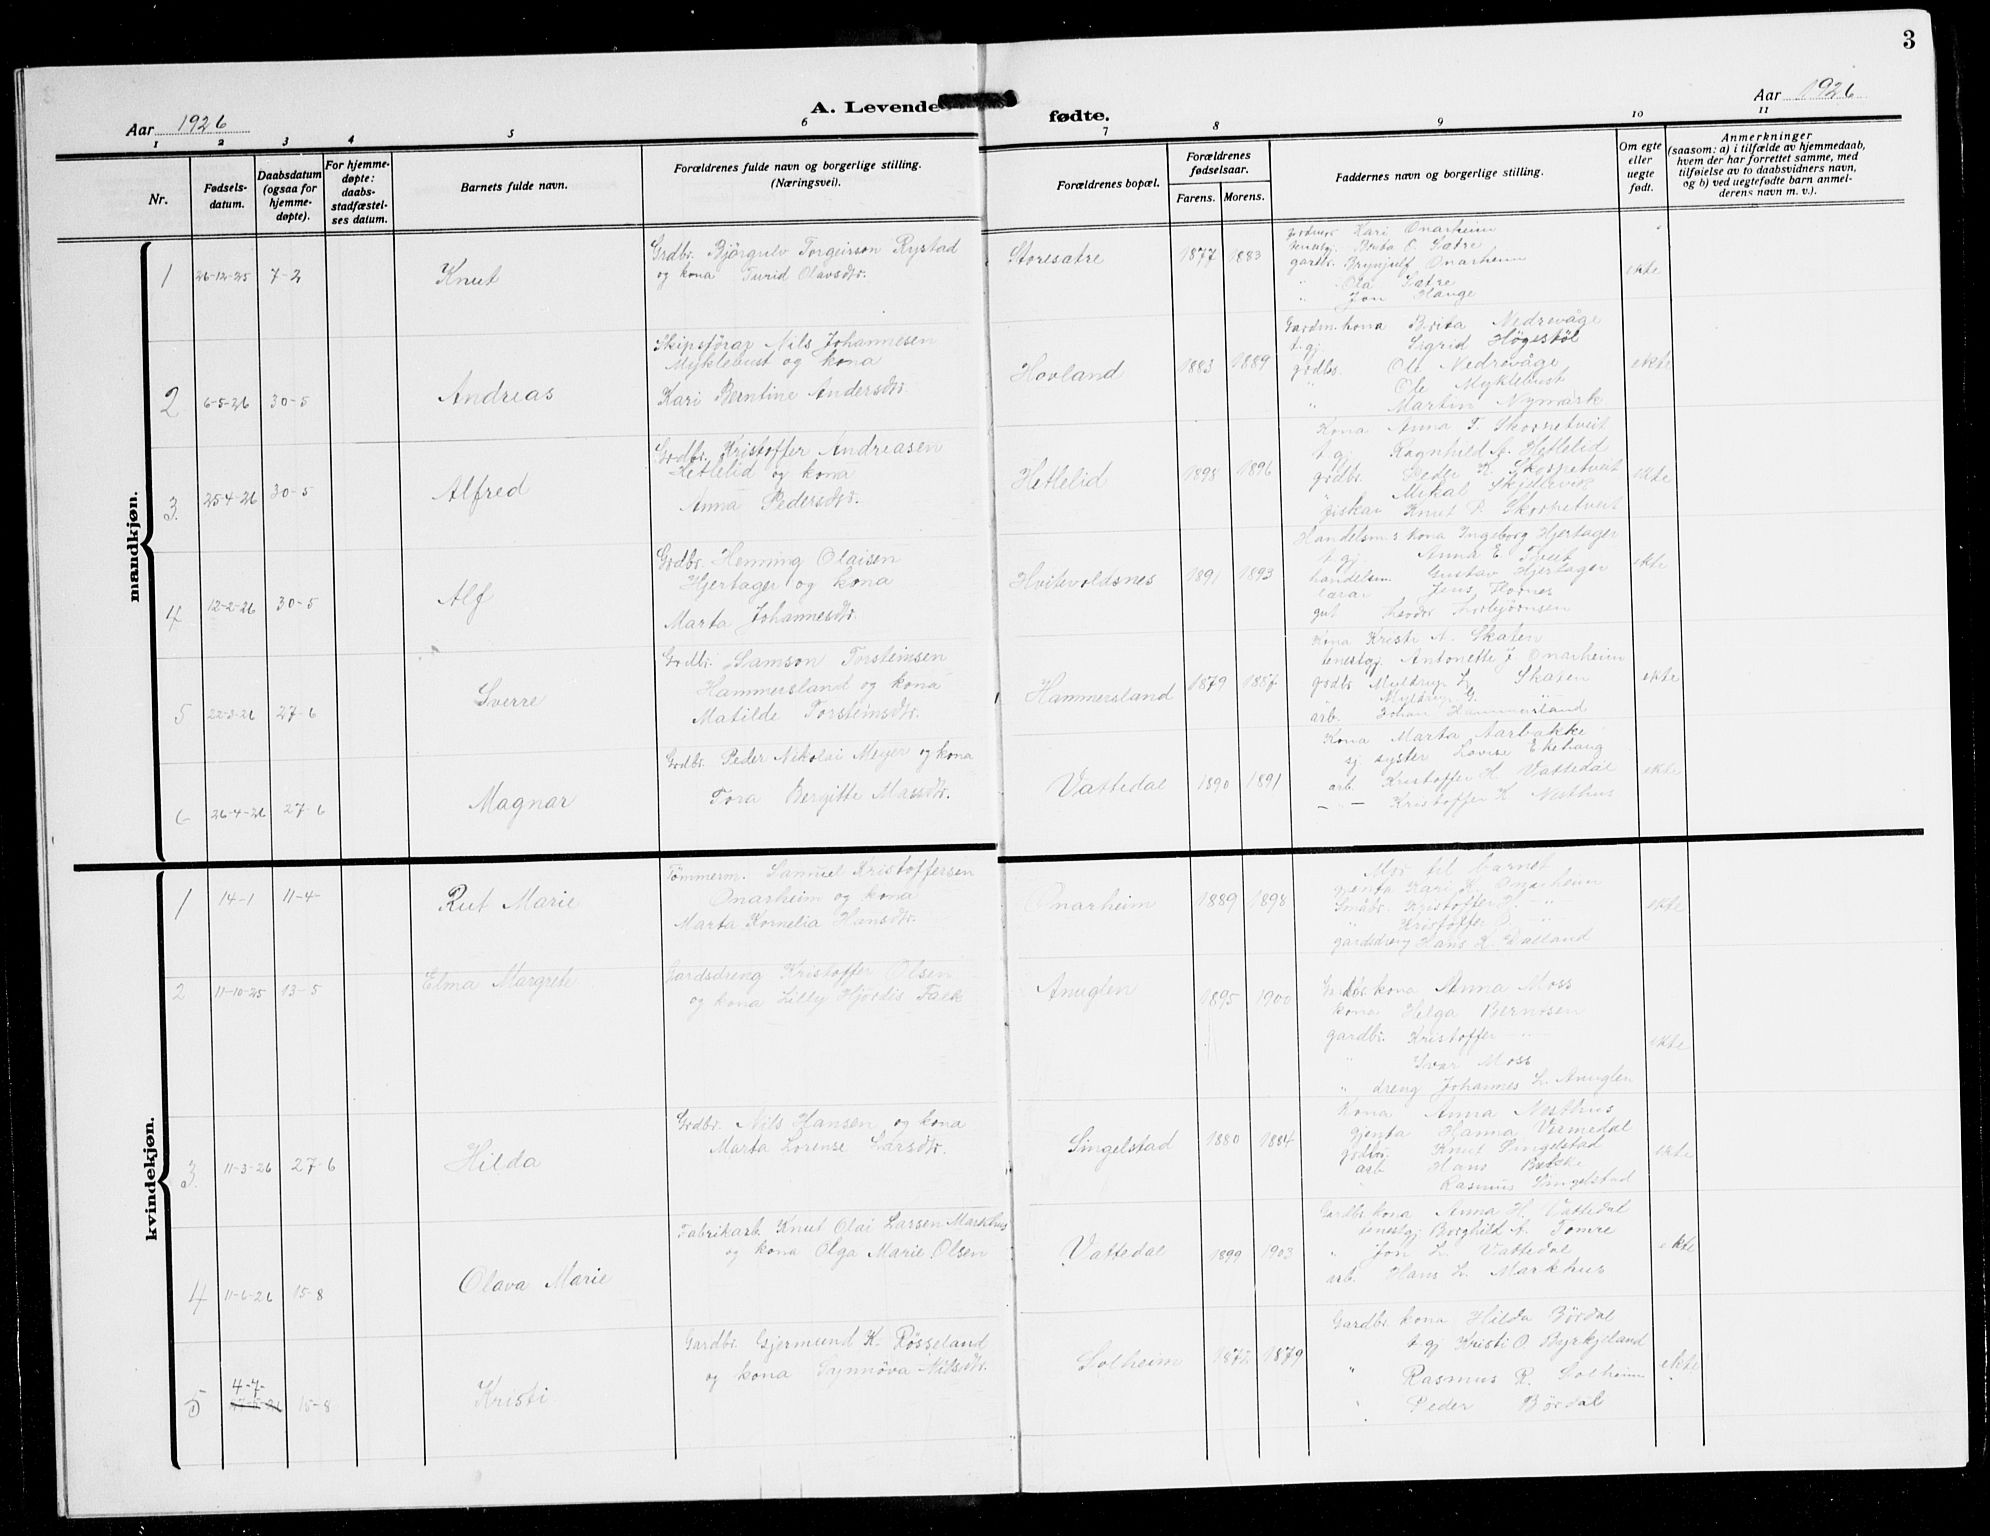 3
Aar 1926
A. Levende
fødte.
Aar 1926
1 2 3 4 5 6 7 8 9 10 11
Nr.
Fødsels-
datum.
Daabsdatum
(ogsaa for
hjemme-
døpte).
For hjemme-
døpte:
daabs-
stadfæstel-
ses datum.
Barnets fulde navn.
Forældrenes fulde navn og borgerlige stilling.
(Næringsvei).
Forældrenes bopæl.
Forældrenes
fødselsaar.
Farens. Morens.
Faddernes navn og borgerlige stilling.
Om egte
eller
uegte
født.
Anmerkninger
(saasom: a) i tilfælde av hjemmedaab,
hvem der har forrettet samme, med
tilføielse av to daabsvidners navn,
og b) ved uegtefødte barn anmel-
derens navn m. v.).
mandkjøn.
1 26-12-25 7-2 Knut
Grdbr. Bjørgulv Torgeirson Rystad
og kona Turid Olavsdtr.
Storesætre 1877 1883
Kari Onarheim
Brita O. Sætre
gardbr. Brynjulf Onarheim
" Ola Sætre
" Jon Hauge
ekte
2 6-5-26 30-5 Andreas
Skipsførar Nils Johannesen
Myklebust og kona
Kari Berntine Andersdtr.
Hovland 1883 1889
Gardm. kona Brita Nedrevåge
t. gj Sigrid Høgestøl
grdbr. Ole Nedrevåge
" Ole Myklebust
" Martin Nymark
ekte
3. 25-4-26 30-5 Alfred
Grdbr. Kristoffer Andreasen
Hetlelid og kona
Anna Pedersdtr.
Hetlelid 1898 1896
Kona Anna T. Skorpetveit
t gj Ragnhild A. Hetlelid
grdbr. Peder K. Skorpetveit
Mikal Skidlevik
fiskar Knut P. Skorpetveit
ekte
4 12-2-26 30-5 Alf
Grdbr. Henning Olaisen
Hjertager og kona
Marta Johannesdtr.
Hvitevoldsnes 1891 1893
Handelsm:s kona Ingeborg Hjertager
t gj Anna E. Tveit
handelsm Gustav Hjertager
lærar Jens Hovnes
gut Teodor Torbjørnsen
ekte
5 22-3-26 27-6 Sverre
Grdbr. Samson Torsteinsen
Hammersland og kona
Matilde Torsteinsdtr.
Hammersland 1879 1887
Kona Kristi A. Skaten
tenestgj Antonette J Onarheim
grdbr Myldrup L. Skaten
Myldrup G.
arb. Johan Hammersland
ekte
6 26-4-26 27-6 Magnar
Grdbr. Peder Nikolai Meyer og kona
Tora Bergitte Masdtr.
Vattedal 1890 1891
Kona Marta Aarbakke
sj syster Lovise Ekehaug
arb. Kristoffer H. Vattedal
— " — Kristoffer K Nesthus
ekte
kvindekjøn.
1 14-1 11-4- Rut Marie
Tømmerm. Samuel Kristoffersen
Onarheim og kona
Marta Kornelia Hansdtr.
Onarheim 1889 1898
Mor til barnet
gjenta Kari K. Onarheim
Småbr. Kristoffer H. — " —
" Kristoffer — " —
gardsdreng Hans K. Dalland
ekte
2 11-10-25 13-5 Elma Margrete
Gardsdreng Kristoffer Olsen
og kona Lilly Hjørdis Falk
Anuglen 1895 1900
Grdbr. kona Anna Moss
kona Helga Berntsen
gardbr. Kristoffer — " —
" Ivar Moss
" dreng Johannes L. Anuglen
ekte
3. 11-3-26 27-6 Hilda
Grdbr. Nils Hansen og kona
Marta Lorense Larsdtr.
Singelstad 1880 1884
Kona Anna Nesthus
gjenta Hanna Vermedal
grdbr. Knut Singelstad
arb Hans Bakke
" Rasmus Singelstad
ekte
4 11-6-26 15-8 Olava Marie
Fabrikarb. Knut Olai Larsen Markhus
og kona Olga Marie Olsen
Vattedal 1899 1903
Gardbr. kona Anna H. Vattedal
tenestgj Borghild A. Tomre
" Jon L. Vattedal
arb. Hans L. Markhus
ekte
5 4-7- 15-8 Kristi
Gardbr. Gjermund K. Røsseland
og kona Synnøva Nilsdtr.
Solheim 1879
Gardbr. kona Hilda Børdal
t. gj Kristi O. Byrkjeland
" Rasmus R. Solheim
" Peder Børdal
ekte